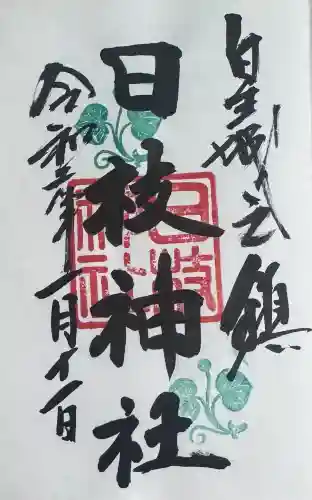 皇城之鎮
日枝神社
令和三年一月十一日
日枝神社